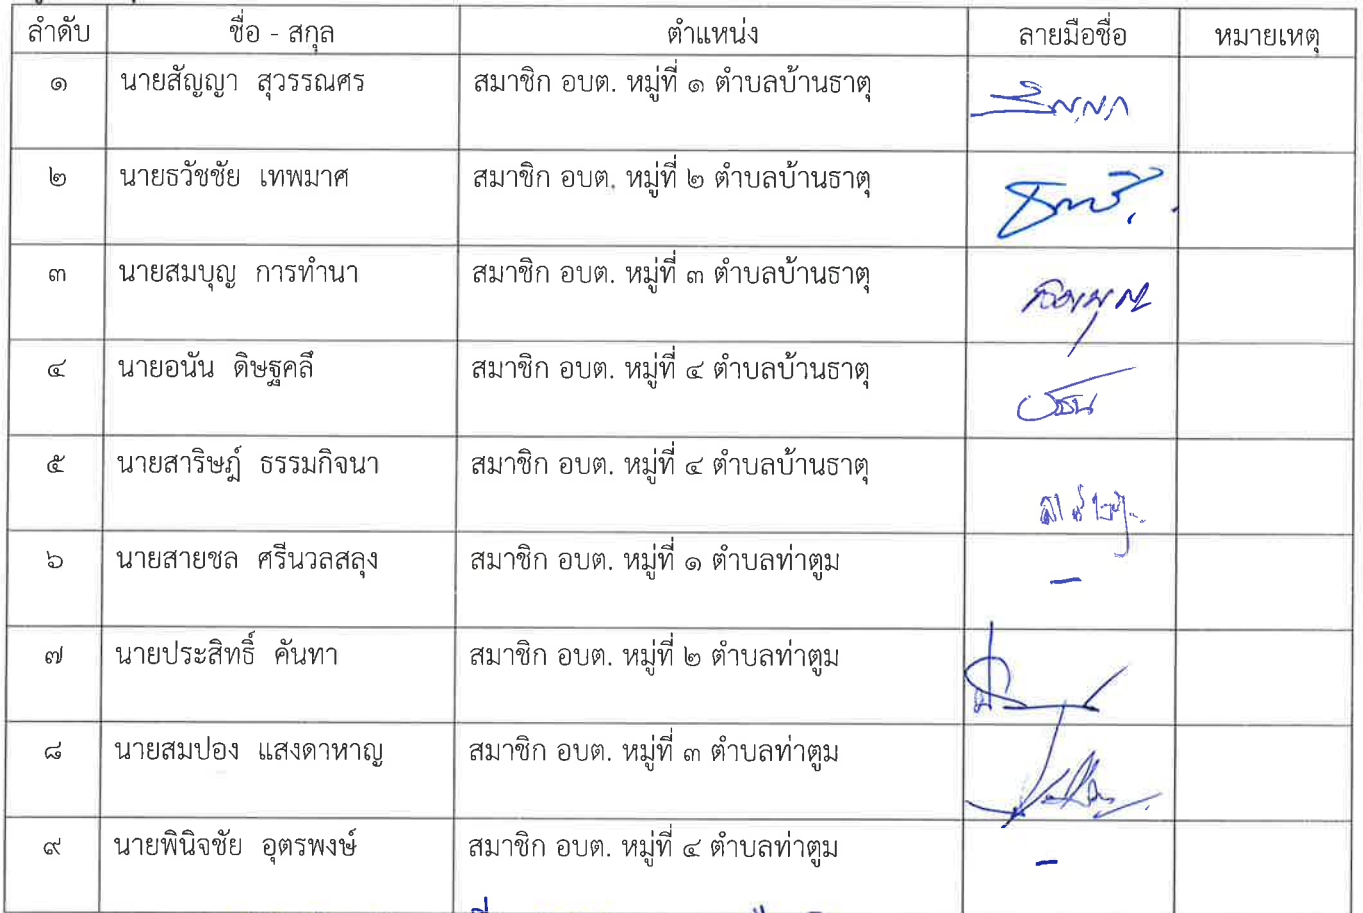 ลำดับ ชื่อ - สกุล ตำแหน่ง ลายมือชื่อ หมายเหตุ
๑ นายสัญญา สุวรรณศร สมาชิก อบต. หมู่ที่ ๑ ตำบลบ้านธาตุ สัญญา
๒ นายธวัชชัย เทพมาศ สมาชิก อบต. หมู่ที่ ๒ ตำบลบ้านธาตุ
๓ นายสมบุญ การทำนา สมาชิก อบต. หมู่ที่ ๓ ตำบลบ้านธาตุ สมบุญ
๔ นายอนัน ดิษฐคลึ สมาชิก อบต. หมู่ที่ ๔ ตำบลบ้านธาตุ
๕ นายสาริษฎ์ ธรรมกิจนา สมาชิก อบต. หมู่ที่ ๔ ตำบลบ้านธาตุ
๖ นายสายชล ศรีนวลสลุง สมาชิก อบต. หมู่ที่ ๑ ตำบลท่าตูม -
๗ นายประสิทธิ์ คันทา สมาชิก อบต. หมู่ที่ ๒ ตำบลท่าตูม
๘ นายสมปอง แสงดาหาญ สมาชิก อบต. หมู่ที่ ๓ ตำบลท่าตูม
๙ นายพินิจชัย อุตรพงษ์ สมาชิก อบต. หมู่ที่ ๔ ตำบลท่าตูม -